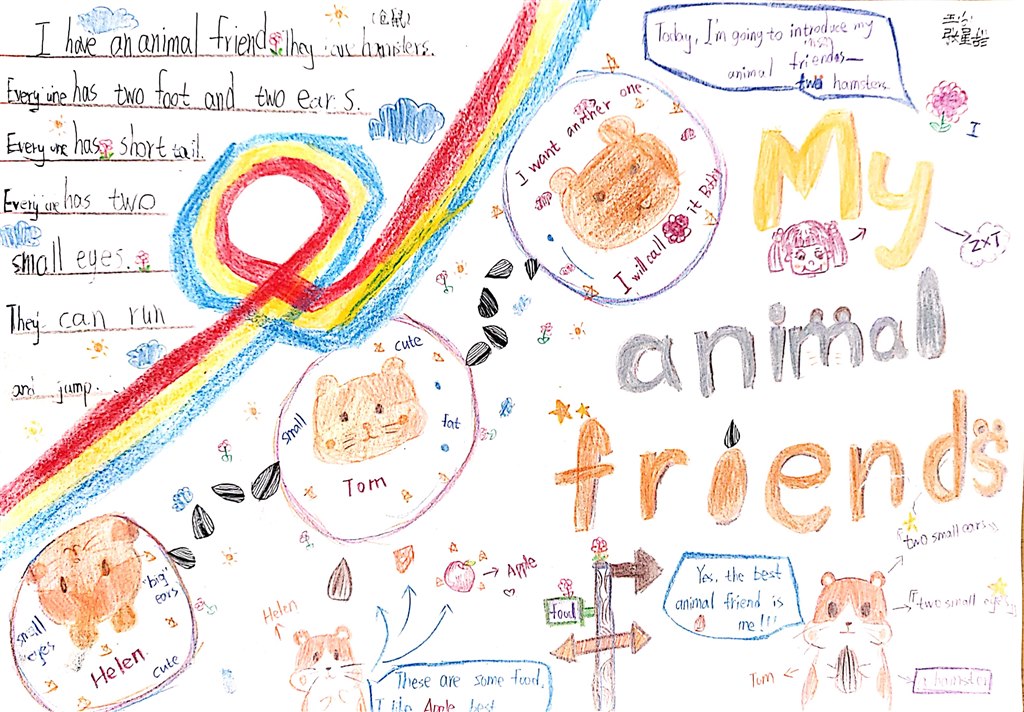 I have an animal friend They are hamsters.
Every one has two foot and two ears.
Every one has short tail.
Every one has two
small eyes.
They can run
and jump.
Today, I'm going to introduce my
animal friends—
two hamsters
I
My
animal
friends
ZXT
I want another one.
I will call it Bobby
cute
small
fat
Tom
"big"
ears
small
eyes
Helen
cute
Helen
Apple
food
These are some food,
I like Apple best
Yes, the best
animal friend is
me!!!
two small ears
two small eyes
Tom
1 hamster